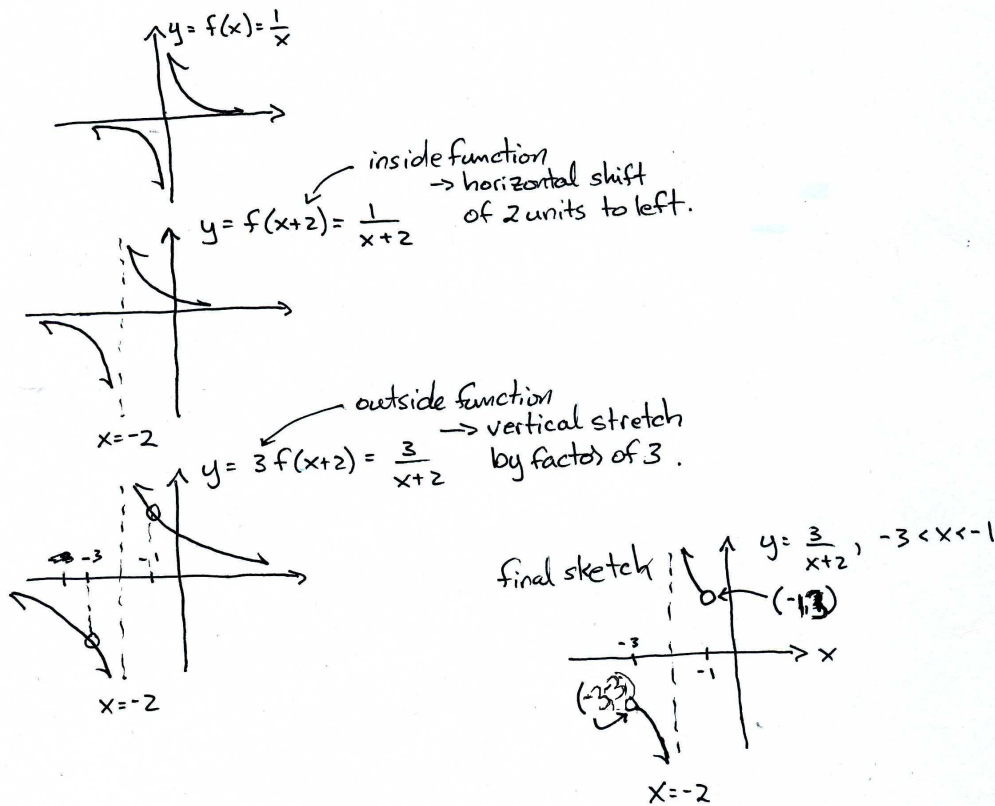 y = f(x) = 1/x
inside function
→ horizontal shift
of 2 units to left.
y = f(x+2) = 1/(x+2)
x=-2
outside function
→ vertical stretch
by factor of 3.
y = 3f(x+2) = 3/(x+2)
-3 -1
x=-2
final sketch
y = 3/(x+2), -3<x<-1
(-1,3)
-3
-1
x
x=-2